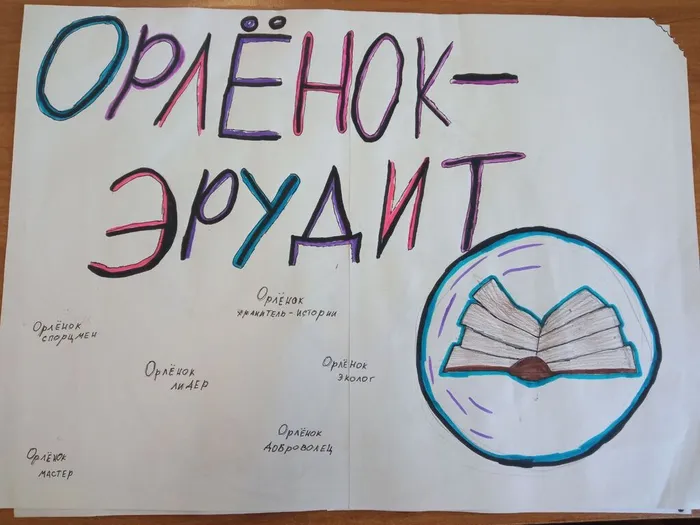 ОРЛЁНОК-
ЭРУДИТ
Орлёнок
хранитель-истории
Орлёнок
спорцмен
Орлёнок
лидер
Орлёнок
эколог
Орлёнок
доброволец
Орлёнок
мастер